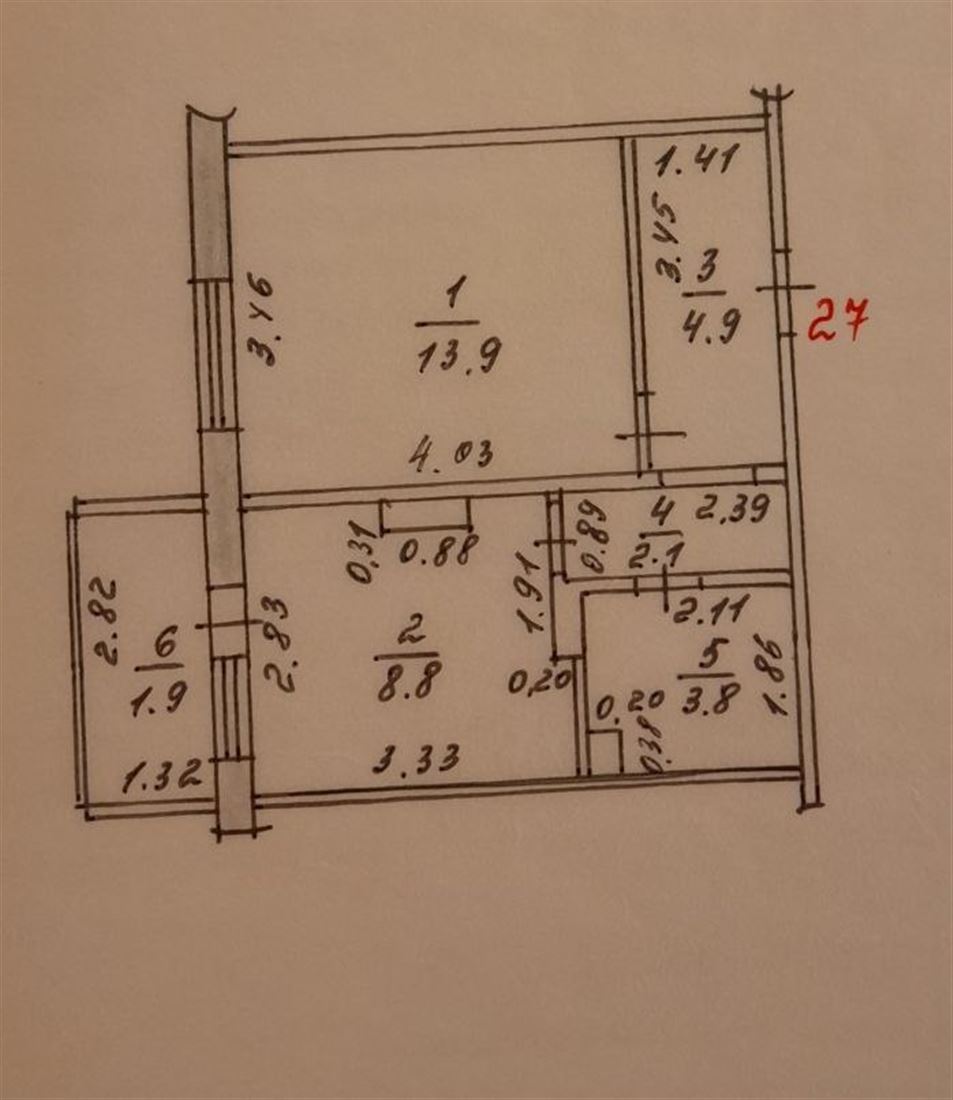 1.41
3.45
3
4.9
27
3.46
1
13.9
4.03
0.89
4
2.39
2.1
0,31
0.88
1.91
2.11
2.82
6
1.9
1.32
2.83
2
8.8
0,20
3.33
5
3.8
1.86
0.20
0.38